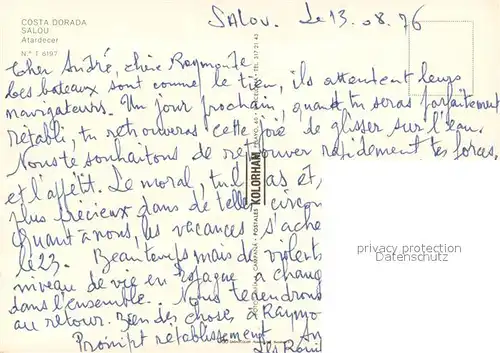 COSTA DORADA
SALOU
Atardecer
N.º T 6197
SALOU. Le 13.08.76
Cher André, chère Raymonde
Les bateaux sont comme le tien, ils attentent leurs
navigateurs. Un jour prochain, quand tu seras parfaitement
rétabli, tu retrouveras cette joie de glisser sur l'eau.
Nous te souhaitons de retrouver rapidement tes forces,
et l'appétit. Le moral, tu l'as et,
plus précieux dans de telles circon
Quant à nous, les vacances s'achè
le 23. Beau temps mais de violents
niveau de vie en Espagne a chang
dans l'ensemble. Nous te rendrons
au retour. Bien des choses à Raymo
Prompt rétablissement
KOLORHAM
privacy protection
Datenschutz